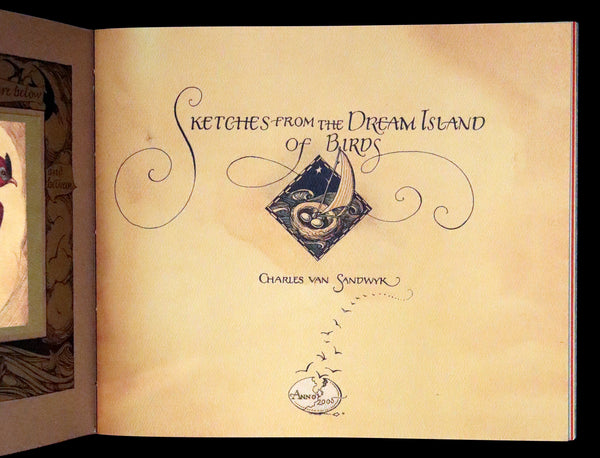 re below
and
between
Sketches from the Dream Island
of Birds
Charles van Sandwyk
Anno
2005